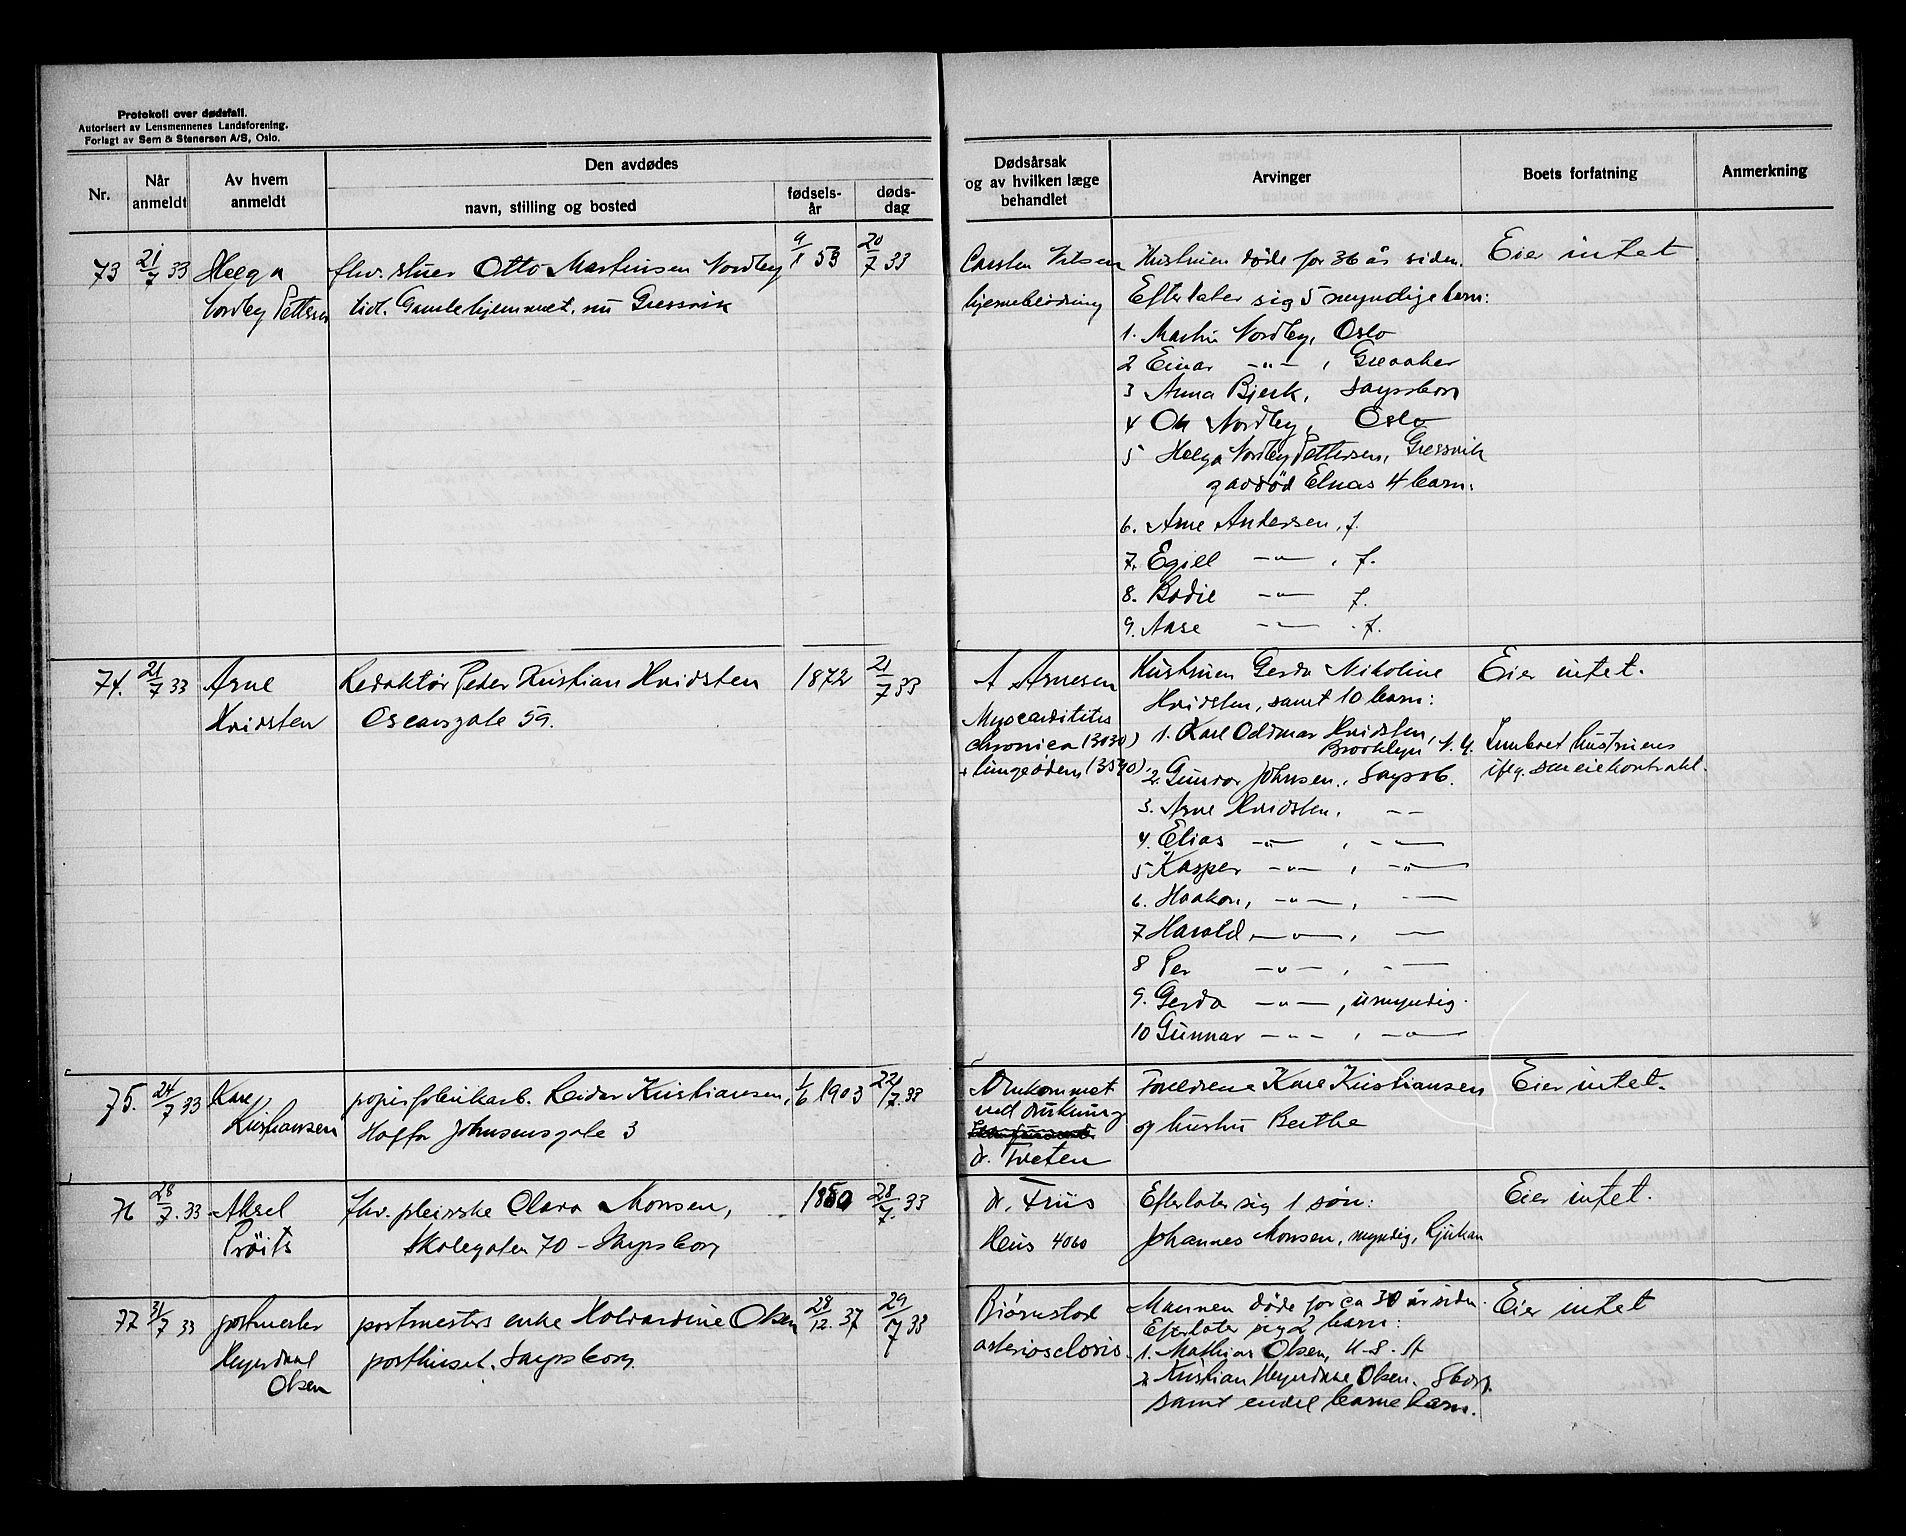 Protokoll over dødsfall.
Autorisert av Lensmennenes Landsforening.
Forlagt av Sem & Stenersen A/S, Oslo.
Nr.
Når anmeldt
Av hvem anmeldt
Den avdødes
navn, stilling og bosted
fødsels-år
døds-dag
Dødsårsak og av hvilken læge behandlet
Arvinger
Boets forfatning
Anmerkning
73 21/7 33 Helga fhv. stuer Otto Martinsen Nordby 9/1 53 20/7 33
Nordby Pettersen tidl. Gamlehjemmet, nu Gressvik
Carsten Nilsen
hjerneblødning
Hustruen døde for 36 år siden.
Efterlater sig 5 myndige barn:
1. Martin Nordby, Oslo
2 Einar -"- , Greaaker
3 Anna Bjerk, Sarpsborg
4 Ole Nordby, Oslo
5 Helga Nordby Pettersen, Gressvik
g avdød Elnas 4 barn:
6. Arne Andersen, f.
7. Egill -"- , f.
8. Bodil -"- f.
9. Aase -"- . f.
Eier intet
74. 21/7 33 Arne Redaktør Peder Kristian Hvidsten 1872 21/7 33
Hvidsten Oscarsgate 59.
A Arnesen
Myocarditites
chronica (3030)
+ lungeødem (3590)
Hustruen Gerda Nikoline
Hvidsten, samt 10 barn:
1. Karl Oddmar Hvidsten,
Brooklyn N. Y.
2. Gunvor Johnsen, Sarpsb.
3. Arne Hvidsten, --
4. Elias -"- , -"-
5 Kasper -"- , -"-
6. Haakon, -"- , --
7 Harald, -"- , --
8 Per -"- , --
9. Gerda -"- , umyndig.
10 Gunnar -"- , -"-
Eier intet.
Innboet hustruens
iflg. særeiekontrakt.
75. 24/7 33 Karl papirfabrikarb. Reidar Kristiansen, 1/6 1903 22/7. 33
Kristiansen Haffor Johnsensgate 3
Omkommet
ved drukning
dr. Tveten
Foreldrene Karl Kristiansen
og hustru Berthe
Eier intet.
76 28/7. 33 Aksel fhv. pleierske Clara Monsen, 1850 28/7. 33
Prøitz Skolegaten 70 - Sarpsborg
dr. Friis
4060
Efterlater sig 1 søn:
Johannes Monsen, myndig, Rjukan
Eier intet.
77 31/7 33 postmester postmesters enke Halvardine Olsen 28/12. 37 29/7 33
Heyerdahl posthuset, Sarpsborg
Olsen
Bjørnstad
arterioscloris.
Mannen døde for ca 30 år siden.
Efterlater sig 2 barn:
1. Mathias Olsen, U. S. A
2. Kristian Heyerdahl Olsen, Sborg.
samt endel barnebarn.
Eier intet